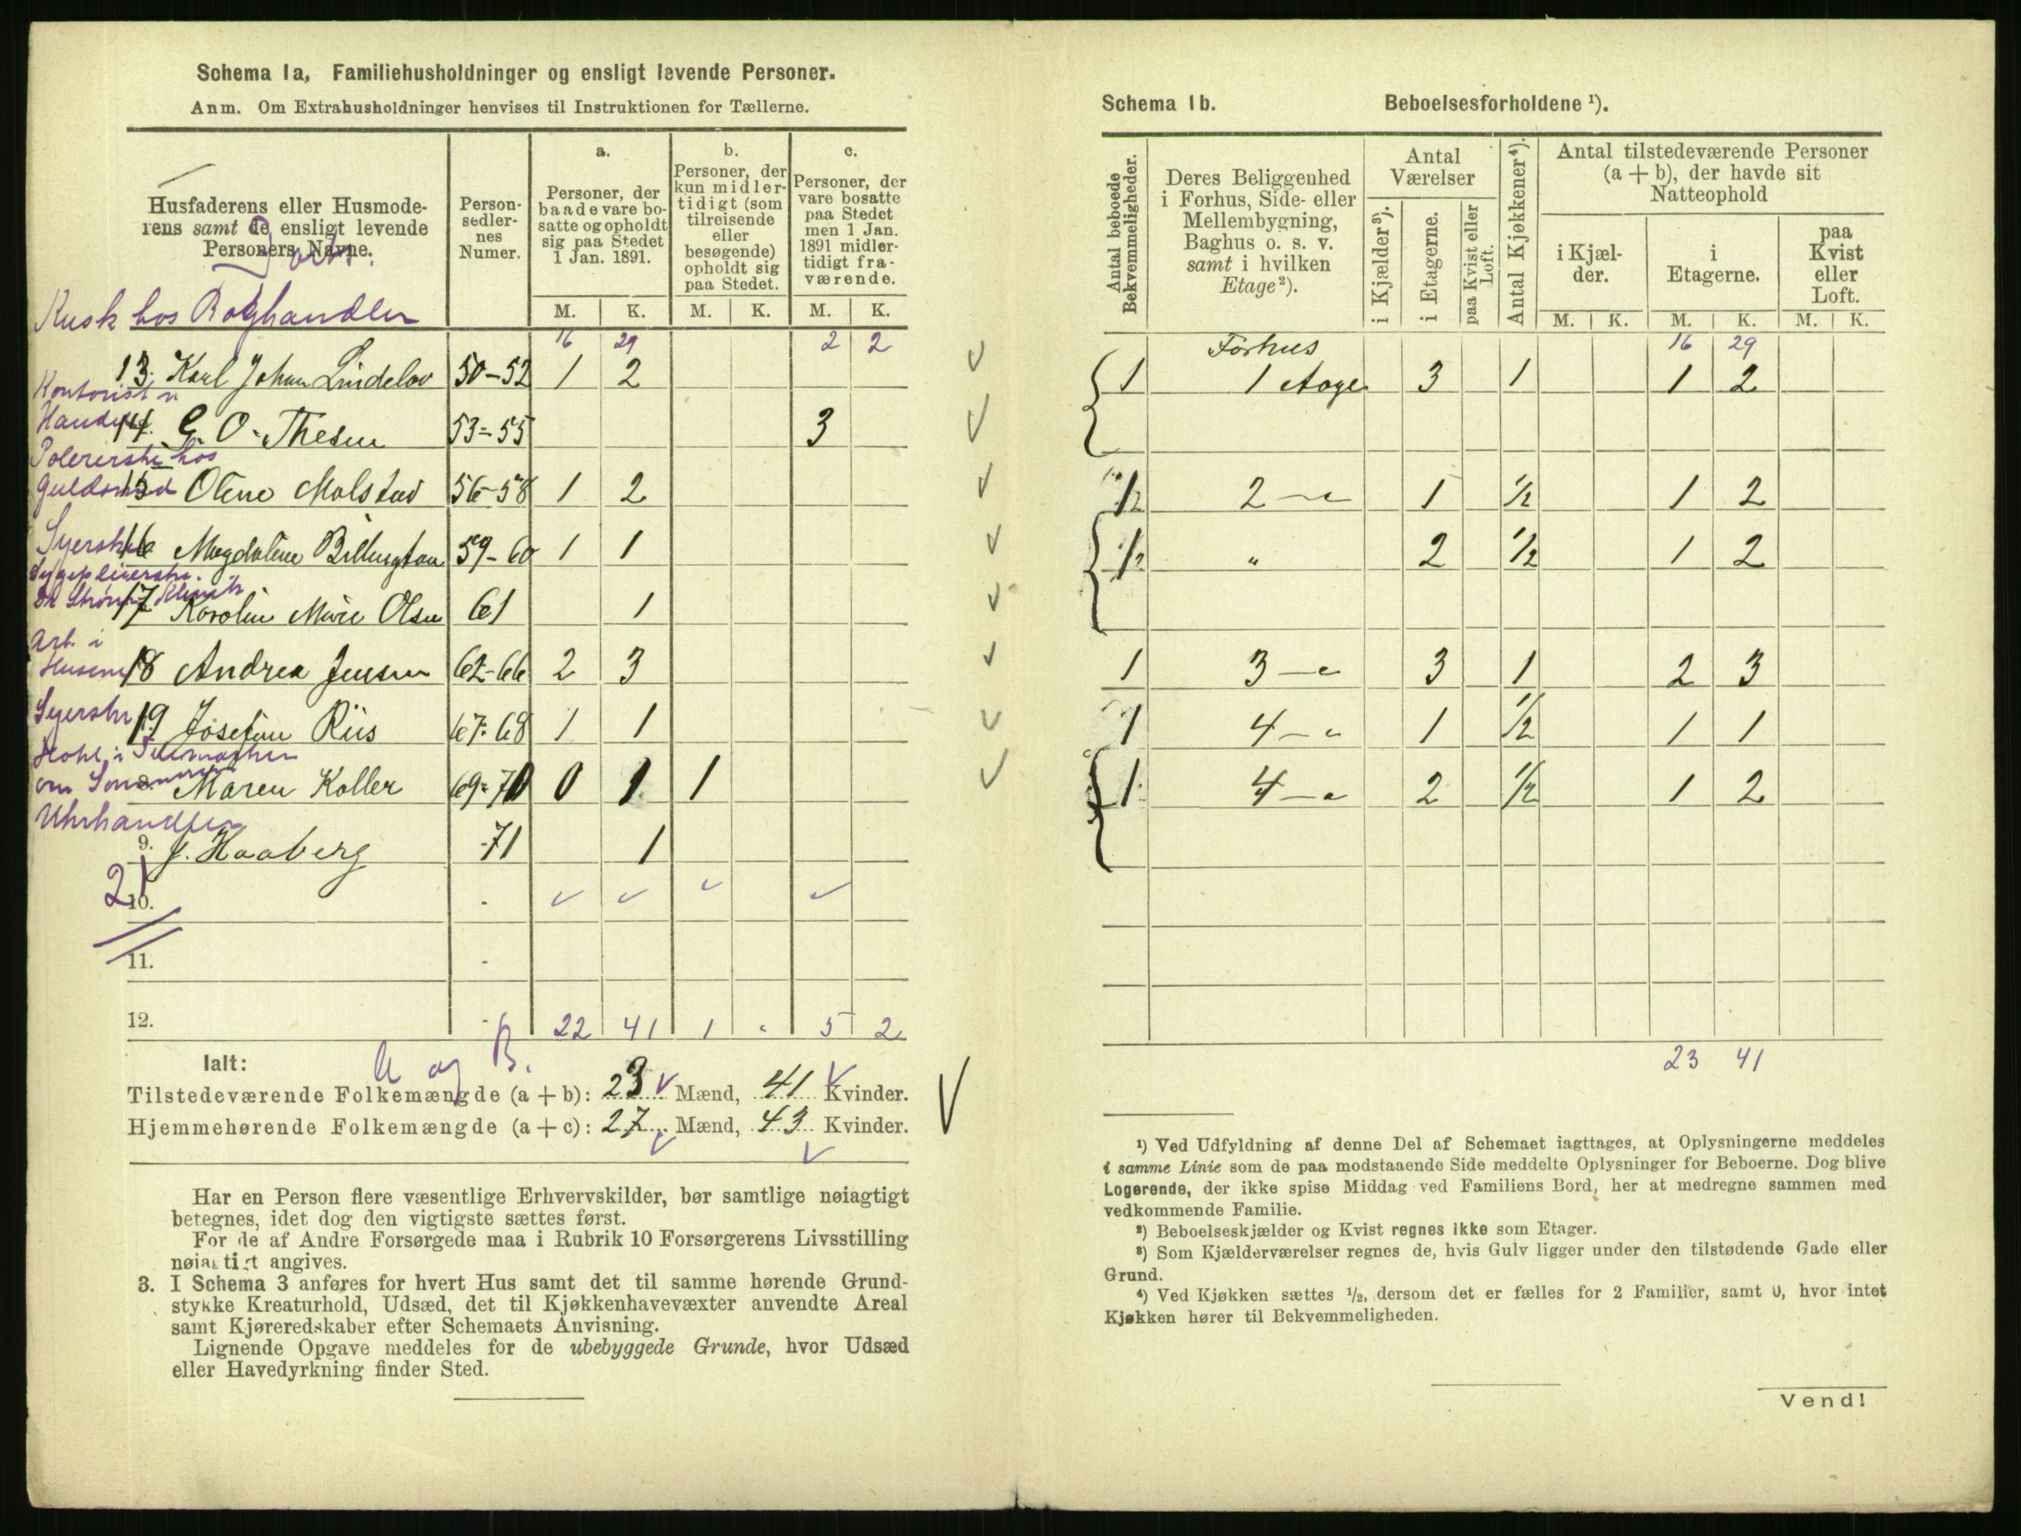 Schema 1a, Familiehusholdninger og ensligt levende Personer.
Anm. Om Extrahusholdninger henvises til Instruktionen for Tællerne.
Husfaderens eller Husmoderens samt de ensligt levende Personers Navne.
Person-sedlernes Numer.
a. Personer, der baade vare bosatte og opholdt sig paa Stedet 1 Jan. 1891.
b. Personer, der kun midlertidigt (som tilreisende eller besøgende) opholdt sig paa Stedet.
c. Personer, der vare bosatte paa Stedet men 1 Jan. 1891 midlertidigt fraværende.
M. K. M. K. M. K.
Kusk hos
16 29 2 2
13. Karl Johan Lindelov 50-52 1 2
Kontorist
14. G. O. Thesen 53-55 3
Polererske hos
Guldsmed
15 Oline Molstad 56-58 1 2
Syerske
16 Magdalene Billington 59-60 1 1
17 Karolin Marie Olsen 61 1
Arb. i
18 Andrea Jensen 62-66 2 3
Syerske
19 Josefine Riis 67-68 1 1
Maren Koller 69-70 0 1 1
Uhrhandler
9. J. Haaberg 71 1
21
10.
11.
12. 22 41 1 5 2
Ialt:
A og B.
Tilstedeværende Folkemængde (a + b): 23 Mænd, 41 Kvinder.
Hjemmehørende Folkemængde (a + c): 27 Mænd, 43 Kvinder.
Har en Person flere væsentlige Erhvervskilder, bør samtlige nøiagtigt
betegnes, idet dog den vigtigste sættes først.
For de af Andre Forsørgede maa i Rubrik 10 Forsørgerens Livsstilling
nøiagtigt angives.
3. I Schema 3 anføres for hvert Hus samt det til samme hørende Grund-
stykke Kreaturhold, Udsæd, det til Kjøkkenhavevæxter anvendte Areal
samt Kjøreredskaber efter Schemaets Anvisning.
Lignende Opgave meddeles for de ubebyggede Grunde, hvor Udsæd
eller Havedyrkning finder Sted.
Schema 1b. Beboelsesforholdene ¹).
Antal beboede Bekvemmeligheder.
Deres Beliggenhed i Forhus, Side- eller Mellembygning, Baghus o. s. v. samt i hvilken Etage ²).
Antal Værelser
i Kjælder ³).
i Etagerne.
paa Kvist eller Loft.
Antal Kjøkkener ⁴).
Antal tilstedeværende Personer (a + b), der havde sit Natteophold
i Kjælder.
i Etagerne.
paa Kvist eller Loft.
M. K. M. K. M. K.
Forhus 16 29
1 1 3 1 1 2
1/2 2 1 1/2 1 2
1/2 " 2 1/2 1 2
1 3 3 1 2 3
1 4 1 1/2 1 1
1 4 2 1/2 1 2
23 41
¹) Ved Udfyldning af denne Del af Schemaet iagttages, at Oplysningerne meddeles
i samme Linie som de paa modstaaende Side meddelte Oplysninger for Beboerne. Dog blive
Logerende, der ikke spise Middag ved Familiens Bord, her at medregne sammen med
vedkommende Familie.
²) Beboelseskjælder og Kvist regnes ikke som Etager.
³) Som Kjælderværelser regnes de, hvis Gulv ligger under den tilstødende Gade eller
Grund.
⁴) Ved Kjøkken sættes 1/2, dersom det er fælles for 2 Familier, samt 0, hvor intet
Kjøkken hører til Bekvemmeligheden.
Vend!